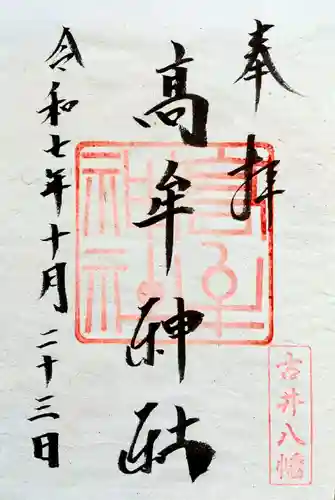 奉拝
高牟神社
令和七年十月二十三日
高牟神社
古井八幡